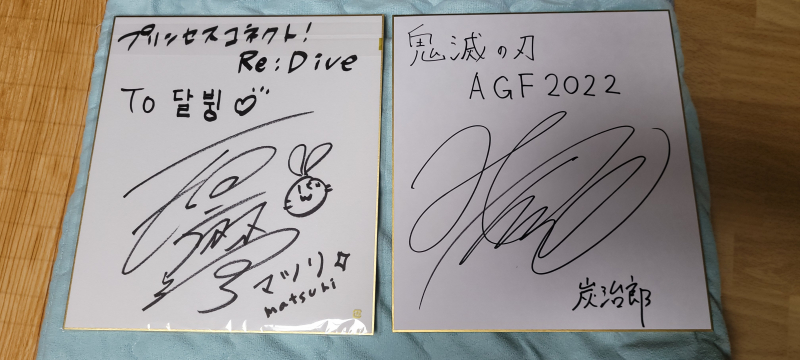 プリンセスコネクト!
Re:Dive
To 달뷩
マツリ
matsuri
鬼滅の刃
AGF 2022
炭治郎